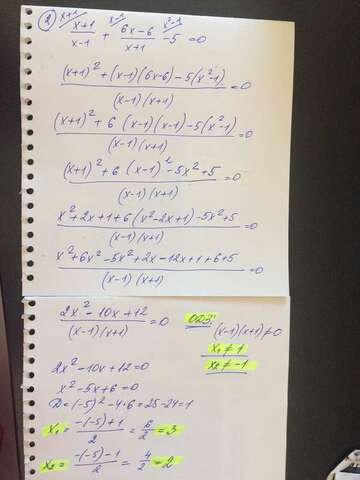 2) x+1 x-1 x²-1
(x+1)/(x-1) + (6x-6)/(x+1) - 5 = 0
((x+1)² + (x-1)(6x-6) - 5(x²-1))/((x-1)(x+1)) = 0
((x+1)² + 6(x-1)(x-1) - 5(x²-1))/((x-1)(x+1)) = 0
((x+1)² + 6(x-1)² - 5x² + 5)/((x-1)(x+1)) = 0
(x² + 2x + 1 + 6(x² - 2x + 1) - 5x² + 5)/((x-1)(x+1)) = 0
(x² + 6x² - 5x² + 2x - 12x + 1 + 6 + 5)/((x-1)(x+1)) = 0
(2x² - 10x + 12)/((x-1)(x+1)) = 0
ОДЗ:
(x-1)(x+1) ≠ 0
x₁ ≠ 1
x₂ ≠ -1
2x² - 10x + 12 = 0
x² - 5x + 6 = 0
D = (-5)² - 4·6 = 25 - 24 = 1
x₁ = (-(-5)+1)/2 = 6/2 = 3
x₂ = (-(-5)-1)/2 = 4/2 = 2